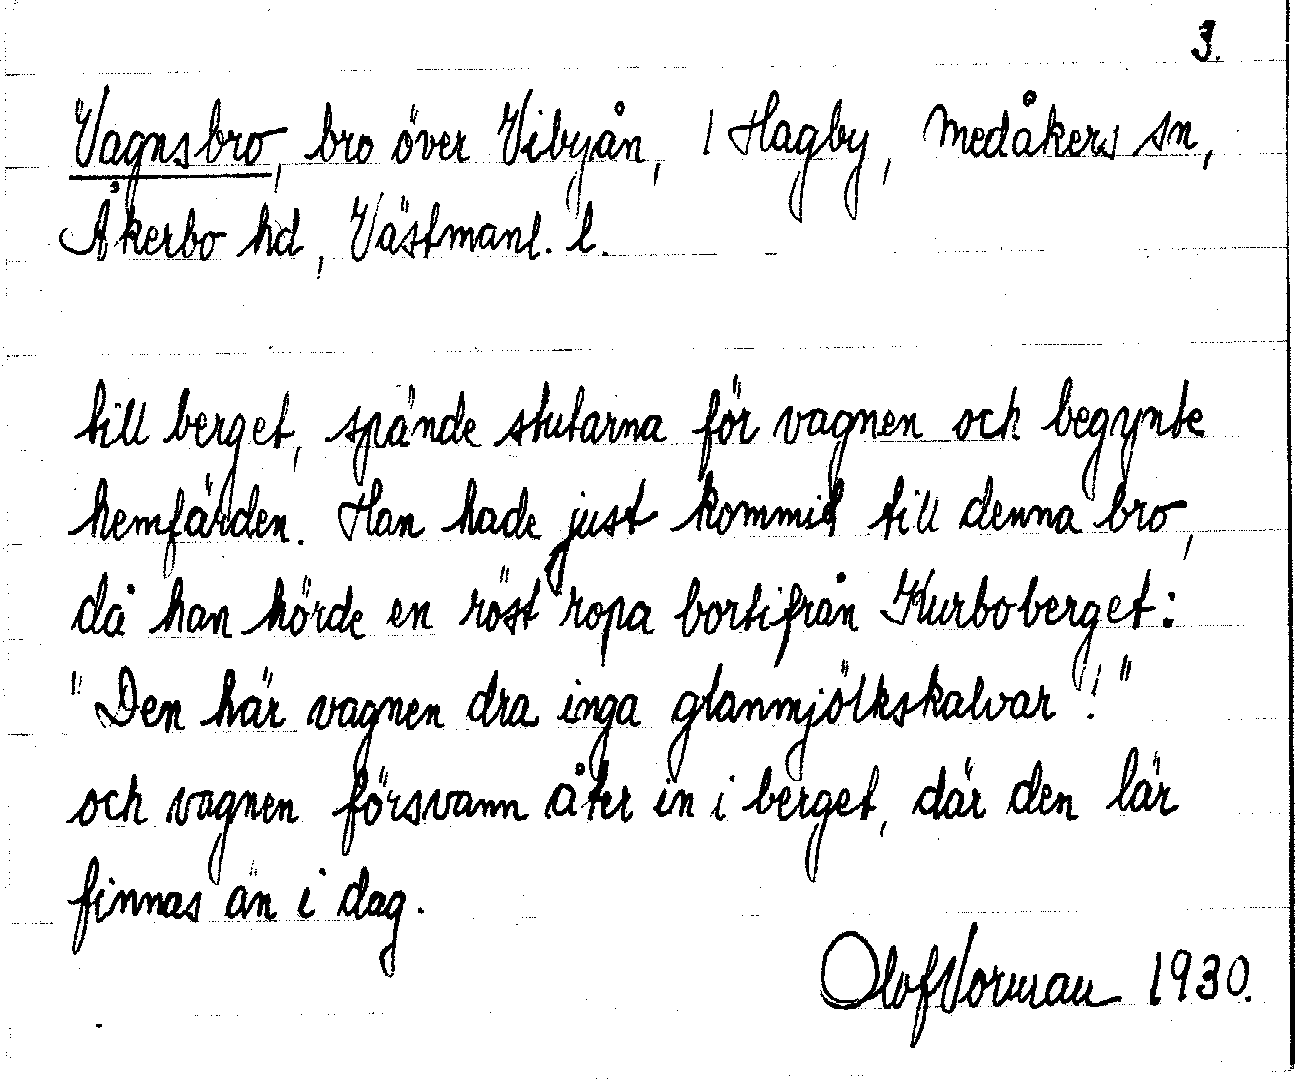 3.
Vagnsbro, bro över Vibyån, i Hagby, Medåkers sn,
Åkerbo hd, Västmanl. l.
till berget, spände stutarna för vagnen och begynte
hemfärden. Han hade just kommit till denna bro,
då han hörde en röst ropa bortifrån Kurboberget:
"Den här vagnen dra inga glanmjölkskalvar"!"
och vagnen försvann åter in i berget, där den lär
finnas än i dag.
Olof Vorman 1930.